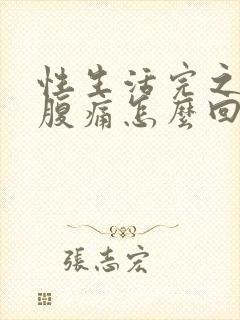 性生活完之
腹痛怎麼回
張志宏